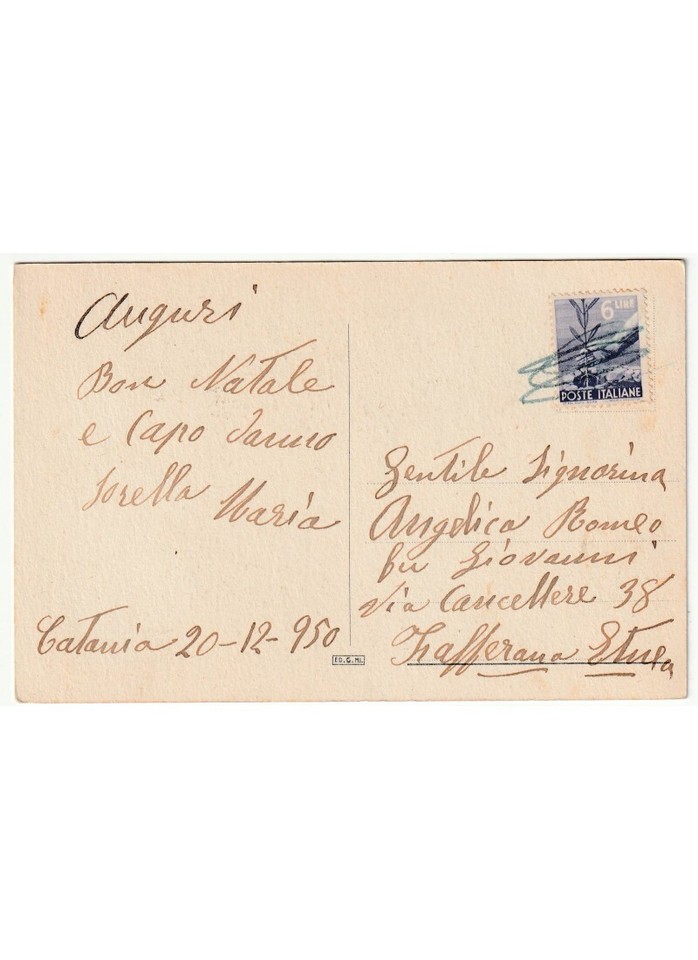 Auguri
Bon Natale
e Capo Danno
Sorella Maria
Catania 20-12-950
6 LIRE
POSTE ITALIANE
Gentile Signorina
Angelica Romeo
fu Giovanni
Via Cancellere 38
Zafferana Etnea
ED. G. MI.